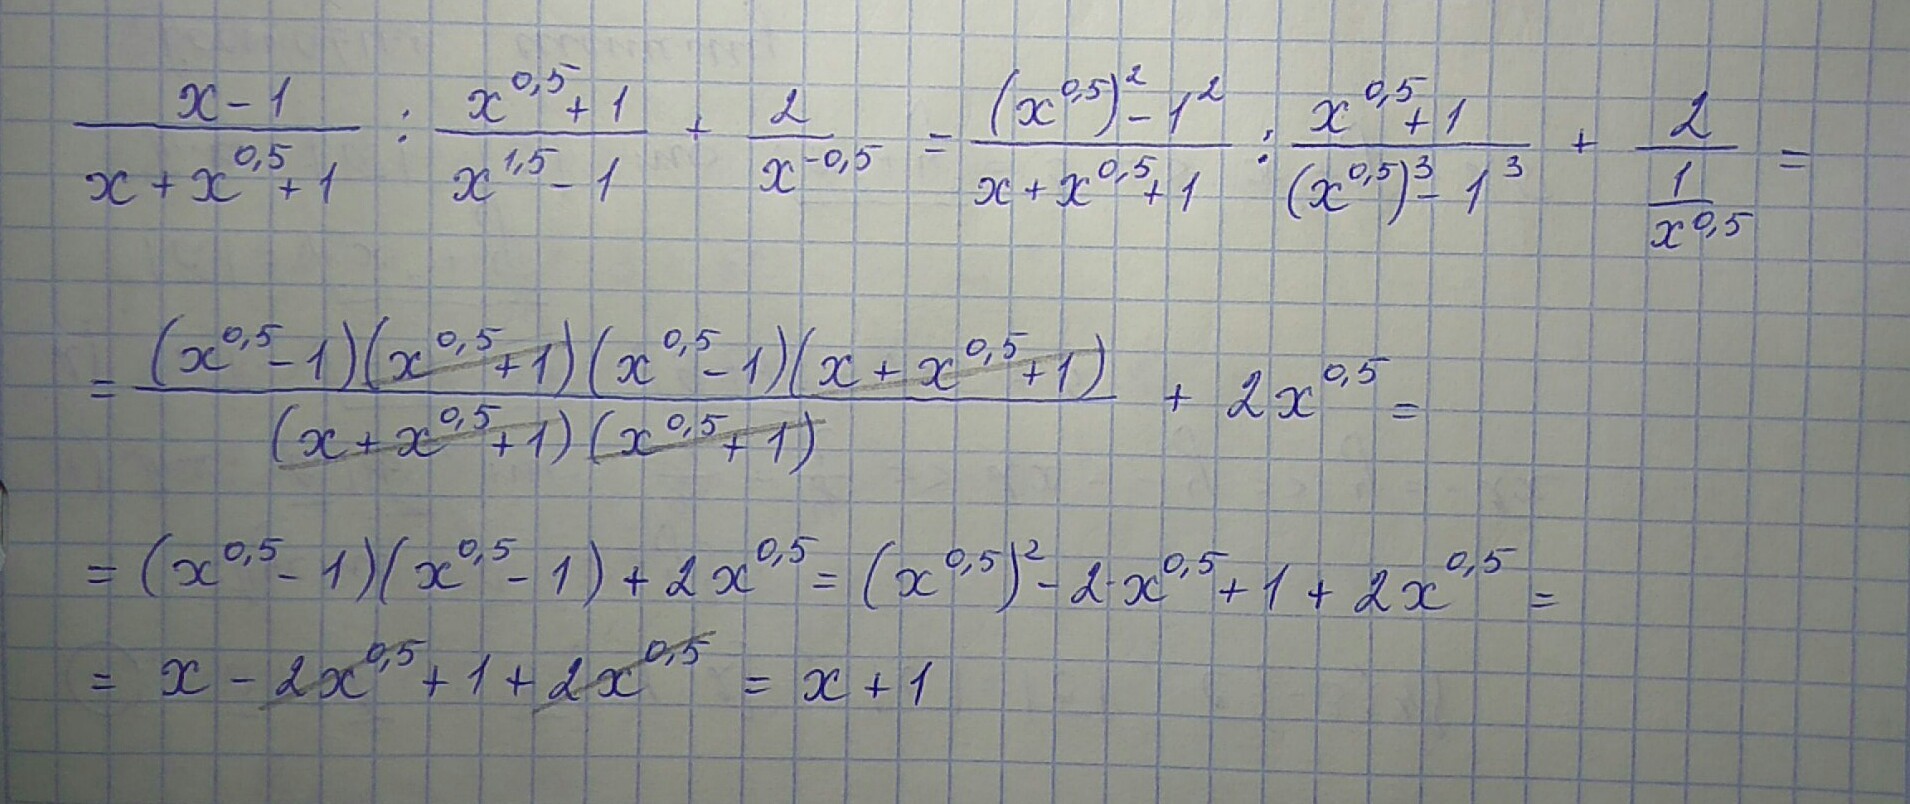 (x-1)/(x+x^0,5+1) : (x^0,5+1)/(x^1,5-1) + 2/(x^-0,5) = ((x^0,5)^2-1^2)/(x+x^0,5+1) : (x^0,5+1)/((x^0,5)^3-1^3) + 2/(1/(x^0,5)) =
= ((x^0,5-1)(x^0,5+1)(x^0,5-1)(x+x^0,5+1))/((x+x^0,5+1)(x^0,5+1)) + 2x^0,5 =
= (x^0,5-1)(x^0,5-1)+2x^0,5 = (x^0,5)^2-2·x^0,5+1+2x^0,5 =
= x-2x^0,5+1+2x^0,5 = x+1